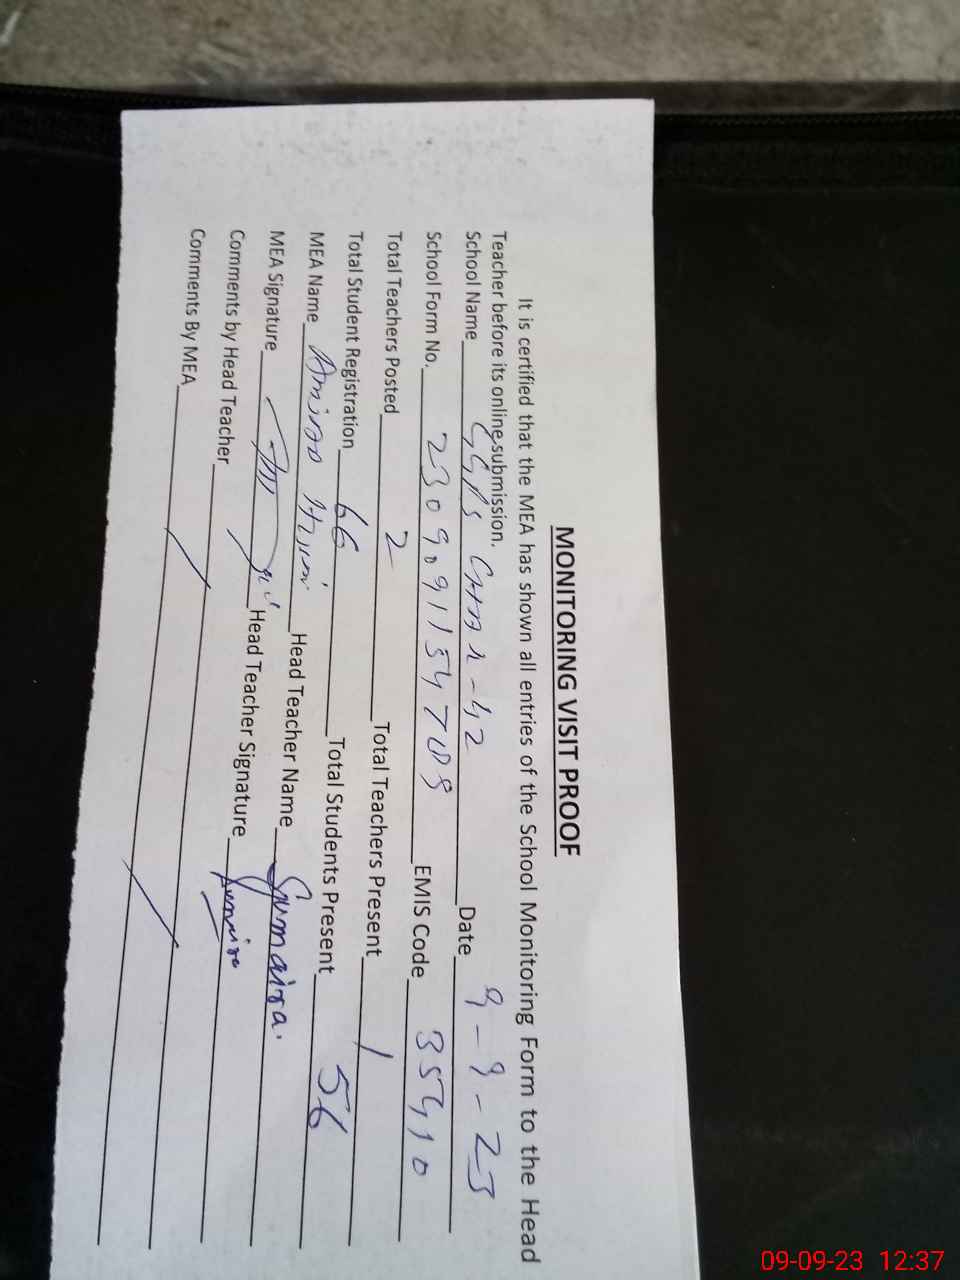 MONITORING VISIT PROOF
It is certified that the MEA has shown all entries of the School Monitoring Form to the Head
Teacher before its online submission.
School Name GGPS Chak-42 Date 9-9-23
School Form No. EMIS Code
Total Teachers Posted 2 Total Teachers Present 1
Total Student Registration 66 Total Students Present 56
MEA Name Head Teacher Name Sumaira.
MEA Signature Head Teacher Signature Sumaira
Comments by Head Teacher
Comments By MEA
09-09-23 12:37